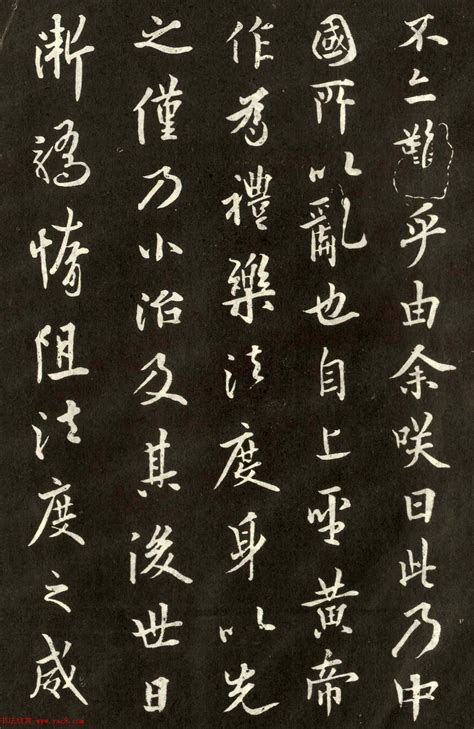 不亦難乎由余咲曰此乃中
國所以亂也自上聖黃帝
作為禮樂法度身以先
之僅乃小治及其後世日
漸驕惰阻法度之威
书法欣赏 www.yac8.com